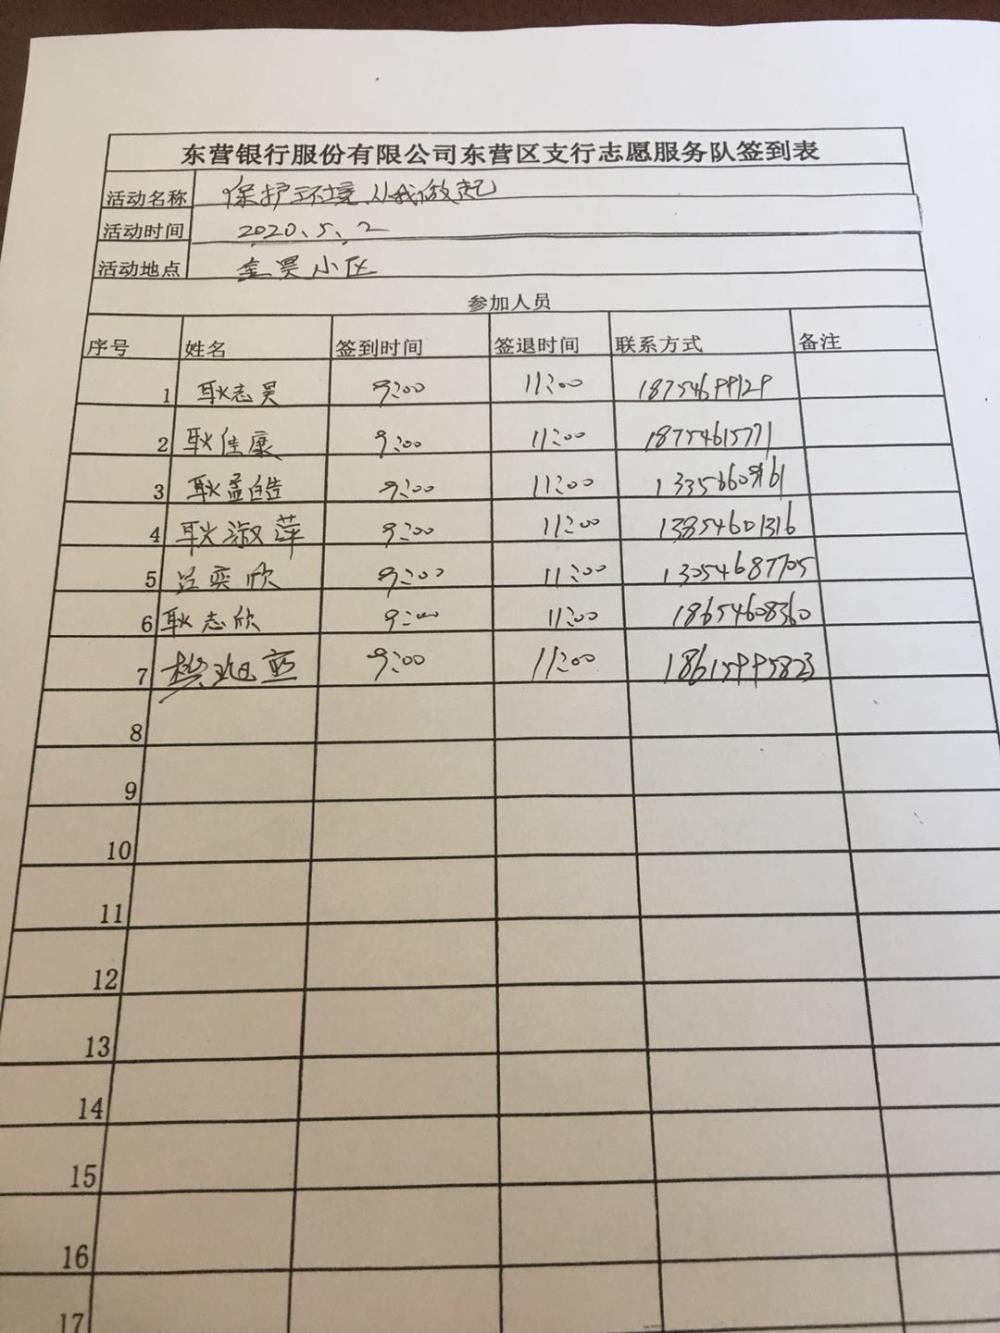 东营银行股份有限公司东营区支行志愿服务队签到表
活动名称 保护环境、从我做起
活动时间 2020、5、2
活动地点 金昊小区
参加人员
序号 姓名 签到时间 签退时间 联系方式 备注
1 耿志昊 9:00 11:00 18754699129
2 耿佳康 9:00 11:00 18754615771
3 耿孟皓 9:00 11:00
4 耿淑萍 9:00 11:00 13854601316
5 吕奕欣 9:00 11:00 13054687705
6 耿志欣 9:00 11:00 18654608360
7 9:00 11:00 18615995823
8
9
10
11
12
13
14
15
16
17